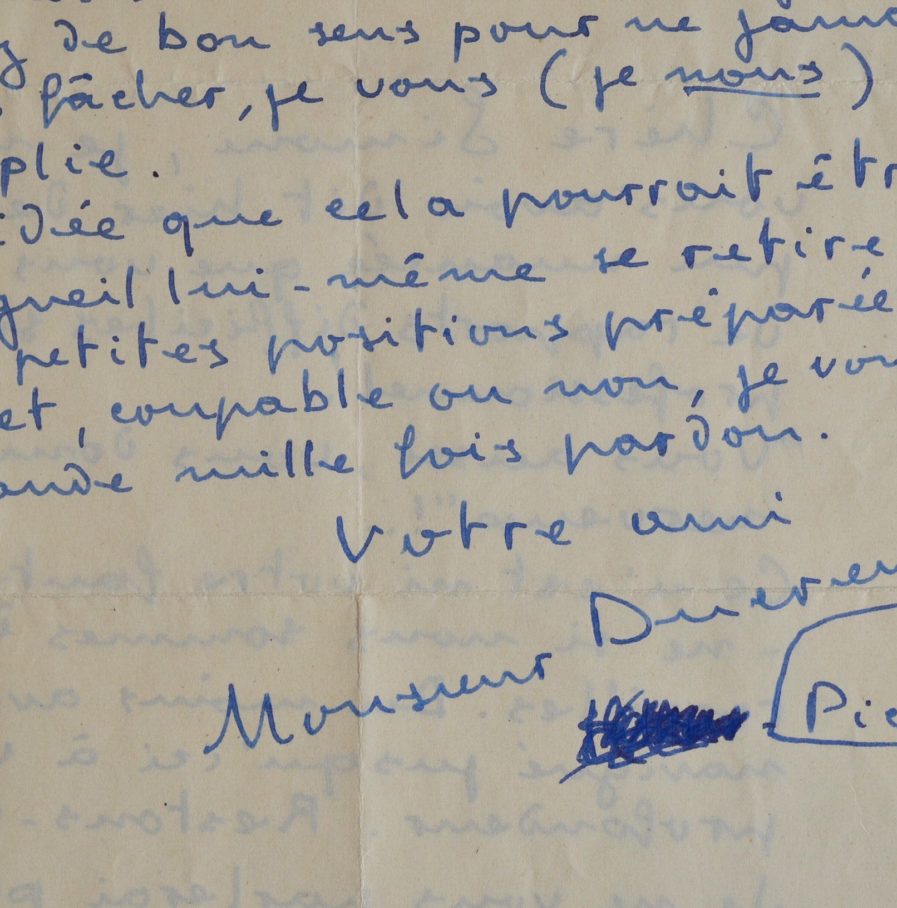 de bon sens pour ne jama
fâcher, je vous (je nous)
plie.
idée que cela pourrait êtr
gueil lui-même se retire
petites positions préparée
et, coupable ou non, je vou
ande mille fois pardon.
Votre ami
Monsieur
Pie